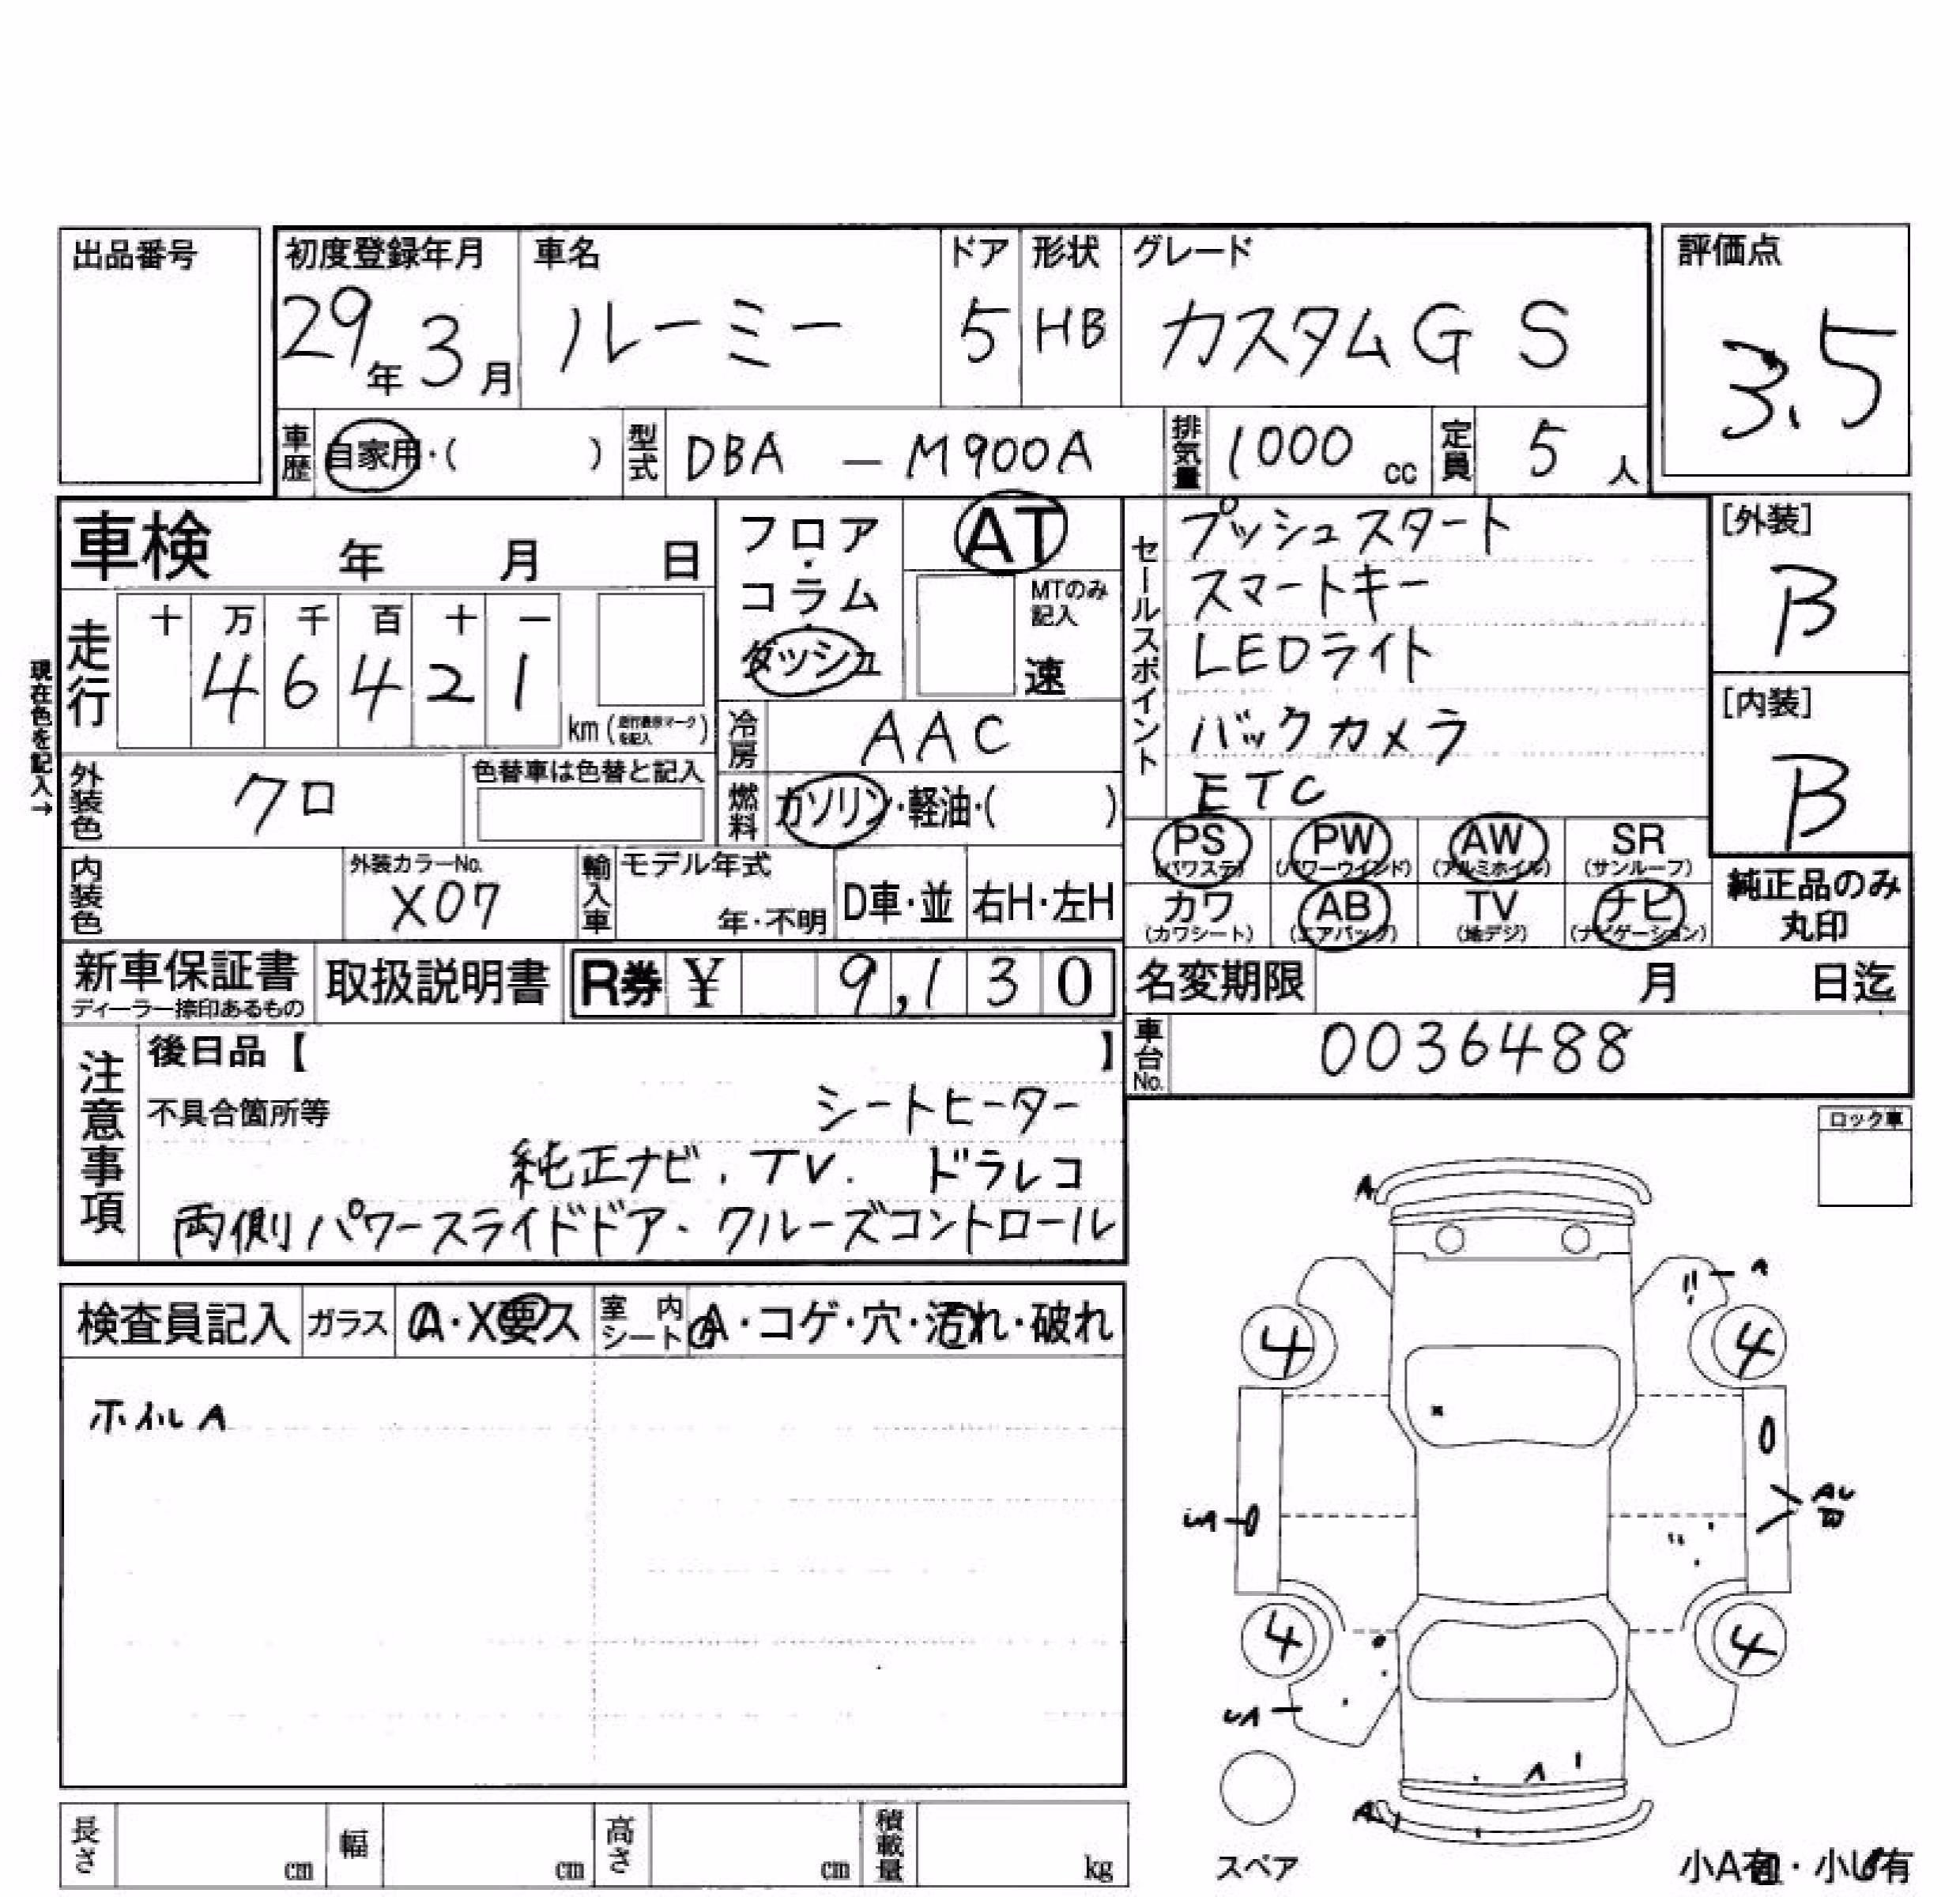 出品番号
初度登録年月 車名 ドア 形状 グレード 評価点
29年3月 ルーミー 5 HB カスタムG S 3.5
車歴 自家用・( ) 型式 DBA-M900A 排気量 1000cc 定員 5人
車検 年 月 日
フロア・コラム・ダッシュ
AT
MTのみ記入
速
セールスポイント
プッシュスタート
スマートキー
LEDライト
バックカメラ
ETC
[外装]
B
[内装]
B
現在色を記入→
走行 十 万 千 百 十 一
4 6 4 2 1 km (走行表示マークを記入)
冷房 AAC
外装色 クロ 色替車は色替と記入
燃料 ガソリン・軽油・( )
PS (パワステ) PW (パワーウインド) AW (アルミホイル) SR (サンルーフ)
カワ (カワシート) AB (エアバッグ) TV (地デジ) ナビ (ナビゲーション)
純正品のみ丸印
内装色 外装カラーNo. X07 輸入車 モデル年式 年・不明 D車・並 右H・左H
新車保証書 ディーラー捺印あるもの 取扱説明書 R券 ¥ 9,130
名変期限 月 日迄
車台No. 0036488
注意事項
後日品【 】
不具合箇所等 シートヒーター
純正ナビ.TV. ドラレコ
両側パワースライドドア、クルーズコントロール
ロック車
検査員記入 ガラス A・X要ス 室内シート A・コゲ・穴・汚れ・破れ
ホイルA
A
A
4 4
4 4
A
A
スペア
長さ cm 幅 cm 高さ cm 積載量 kg
小A有・小U有